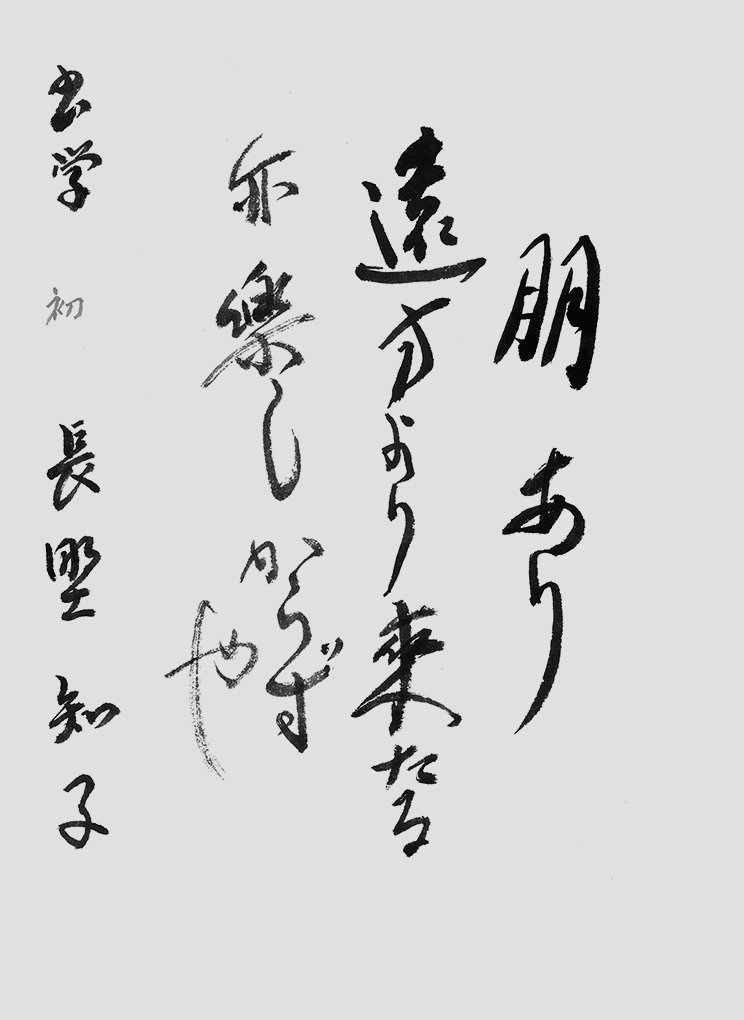 朋あり
遠方より來たる
亦樂しからず
や
书学 初 長 知子